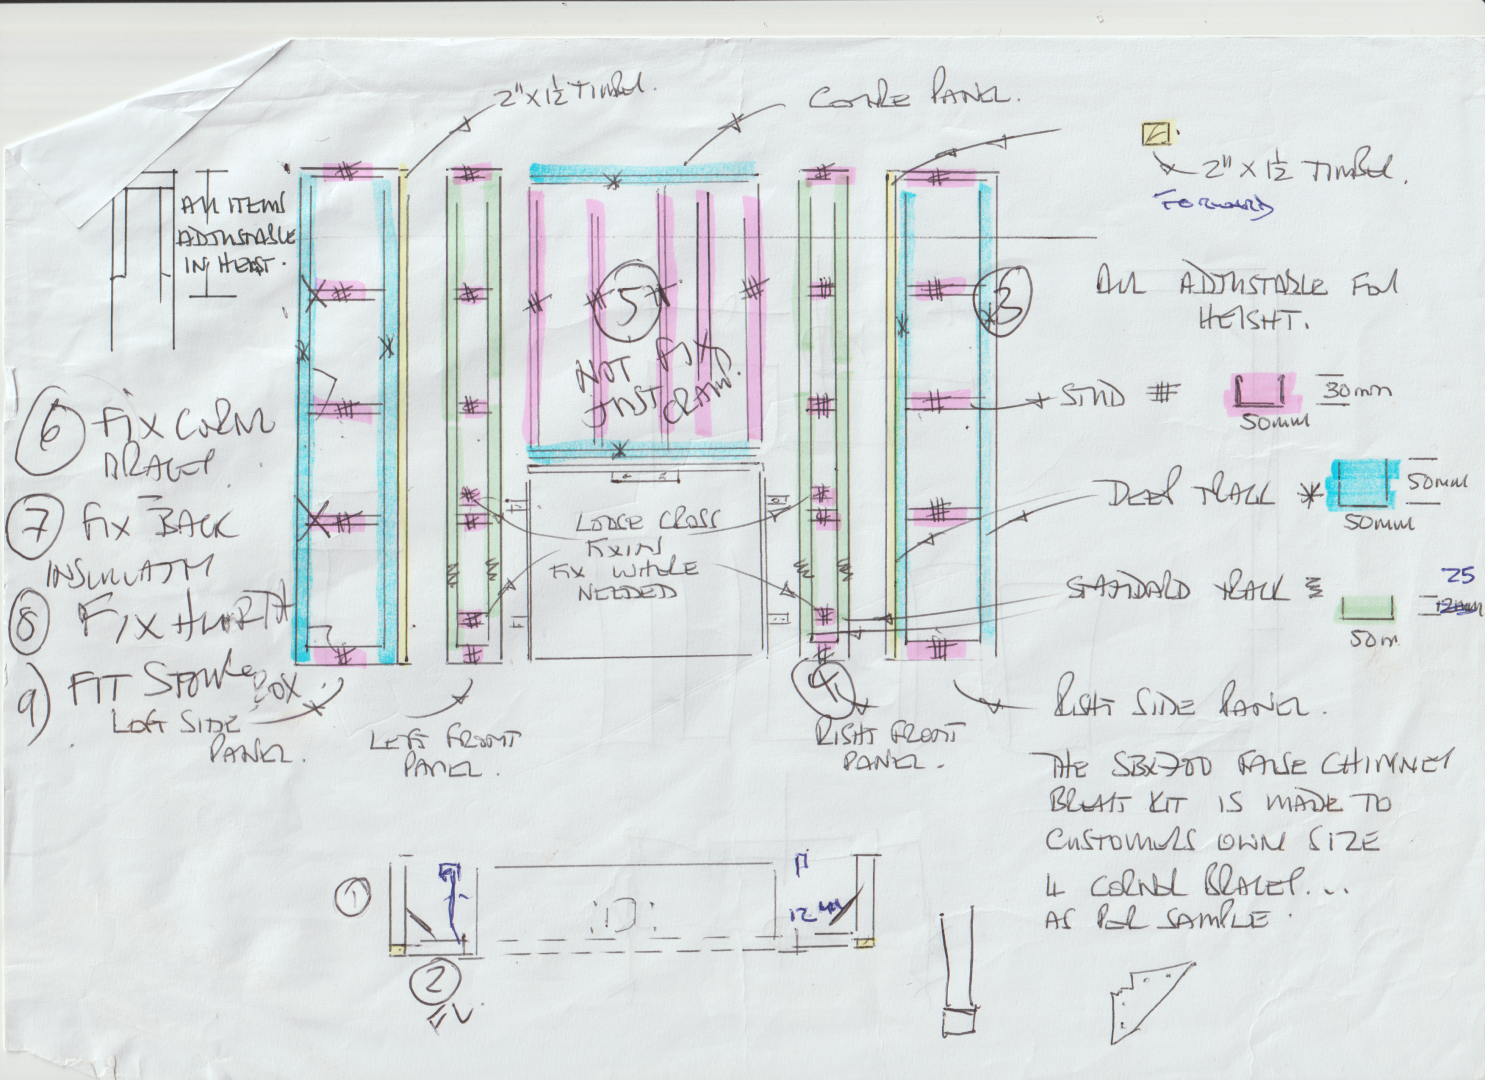 2" X 1½ TIMBER.
CENTRE PANEL.
2" X 1½ TIMBER.
FORWARD
ALL ITEMS
ADJUSTABLE
IN HEIGHT.
ALL ADJUSTABLE FOR
HEIGHT.
3
5
NOT FIX
JUST CRAMP.
STUD #
30mm
50mm
6 FIX CORNER
BRACES
DEEP TRACK
50mm
50mm
7 FIX BACK
INSULATION
LOOSE CROSS
FIXING
FIX WHERE
NEEDED
STANDARD TRACK
25
12mm
50m
8 FIX HEARTH
9) FIT STOVE BOX.
LEFT SIDE
PANEL.
LEFT FRONT
PANEL.
4
RIGHT FRONT
PANEL.
RIGHT SIDE PANEL.
THE SBX700 FALSE CHIMNEY
BREAST KIT IS MADE TO
CUSTOMERS OWN SIZE
4 CORNER BRACES...
AS PER SAMPLE.
1
12mm
2